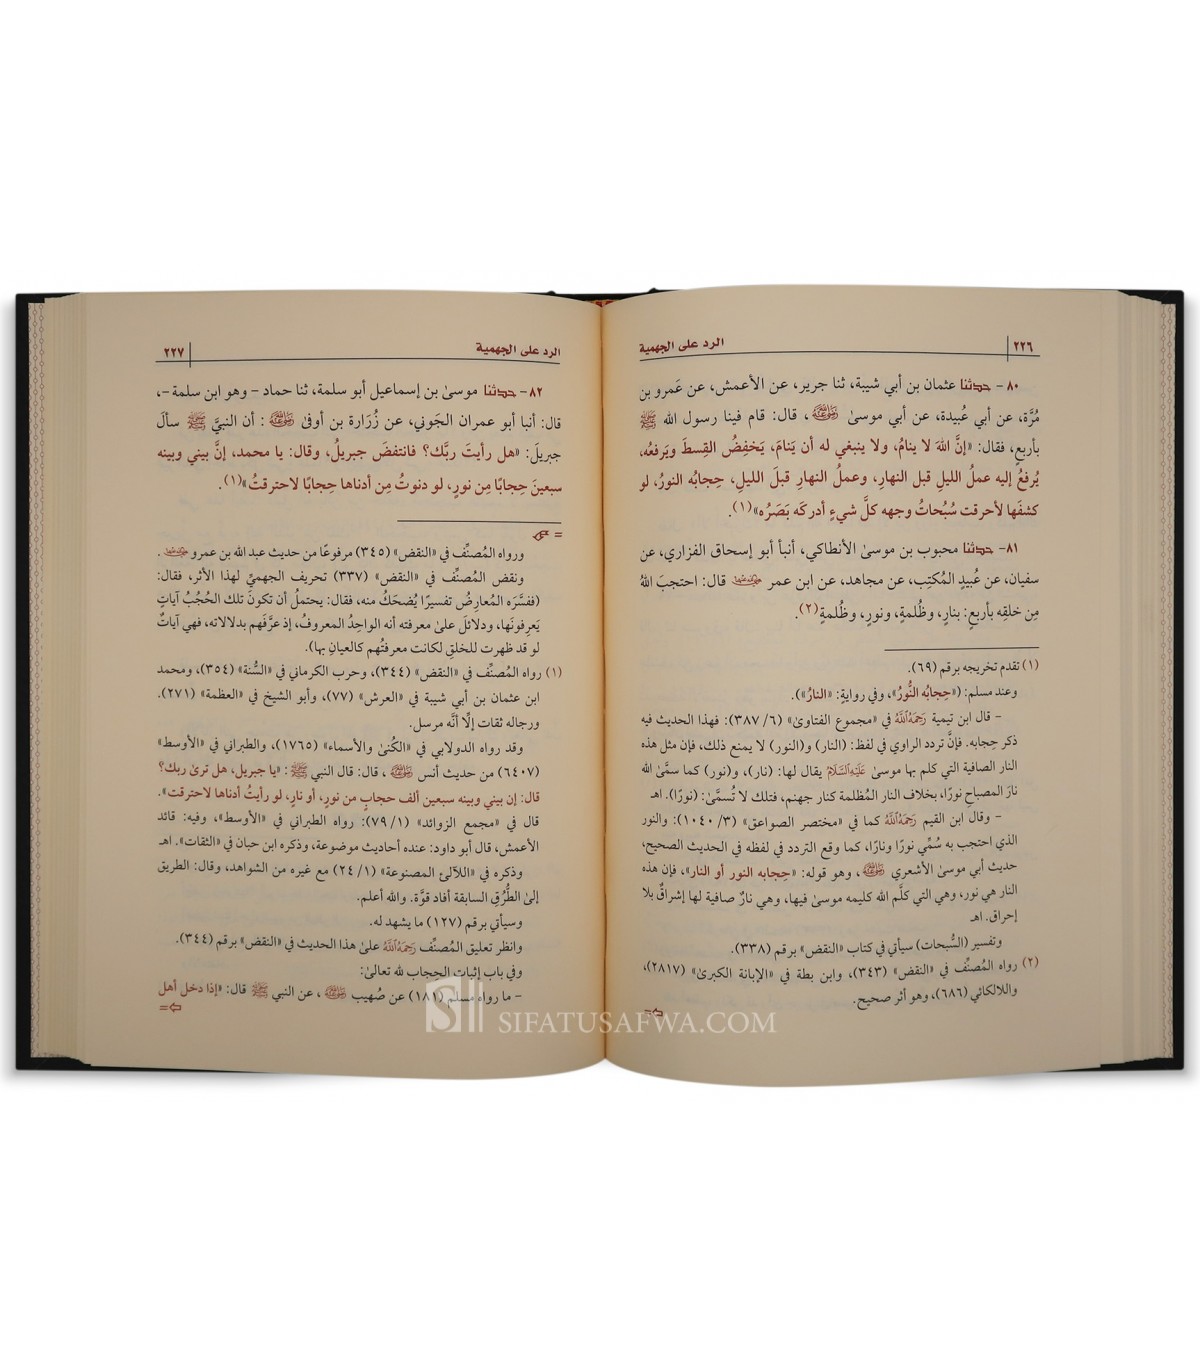 ٢٢٦
الرد على الجهمية
٨٠- حدثنا عثمان بن أبي شيبة، ثنا جرير، عن الأعمش، عن عَمرو بن
مُرَّة، عن أبي عُبيدة، عن أبي موسىٰ ﵁، قال: قام فينا رسول الله ﷺ
بأربعٍ، فقال: «إنَّ اللهَ لا ينامُ، ولا ينبغي له أن يَنامَ، يَخفِضُ القِسطَ ويَرفعُه،
يُرفعُ إليه عملُ الليلِ قبل النهارِ، وعملُ النهارِ قبلَ الليلِ، حِجابُه النورُ، لو
كشفَها لأحرقت سُبُحاتُ وجهه كلَّ شيءٍ أدركَه بَصَرُه»(١).
٨١- حدثنا محبوب بن موسىٰ الأنطاكي، أنبأ أبو إسحاق الفزاري، عن
سفيان، عن عُبيدٍ المُكتِب، عن مجاهد، عن ابن عمر ﵄ قال: احتجبَ اللهُ
مِن خلقِه بأربعٍ: بنارٍ، وظُلمةٍ، ونورٍ، وظُلمةٍ(٢).
(١) تقدم تخريجه برقم (٦٩).
وعند مسلم: («حِجابُه النُّورُ»، وفي روايةٍ: «النارُ»).
- قال ابن تيمية رَحِمَهُ اللَّهُ في «مجموع الفتاوىٰ» (٦/ ٣٨٧): فهذا الحديث فيه
ذكر حِجابه. فإنَّ تردد الراوي في لفظ: (النار) و(النور) لا يمنع ذلك، فإن مثل هذه
النار الصافية التي كلم بها موسىٰ عَلَيْهِ السَّلَامُ يقال لها: (نار)، و(نور) كما سمَّىٰ الله
نارَ المصباحِ نورًا، بخلاف النار المُظلمة كنار جهنم، فتلك لا تُسمَّىٰ: (نورًا). اهـ
- وقال ابن القيم رَحِمَهُ اللَّهُ كما في «مختصر الصواعق» (٣/ ١٠٤٠): والنور
الذي احتجب به سُمِّي نورًا ونارًا، كما وقع التردد في لفظه في الحديث الصحيح،
حديث أبي موسىٰ الأشعري ﵁، وهو قوله: «حِجابه النور أو النار»، فإن هذه
النار هي نور، وهي التي كلَّم الله كليمه موسىٰ فيها، وهي نارٌ صافية لها إشراقٌ بلا
إحراق. اهـ
وتفسير (السُّبحات) سيأتي في كتاب «النقض» برقم (٣٣٨).
(٢) رواه المُصنِّف في «النقض» (٣٤٣)، وابن بطة في «الإبانة الكبرىٰ» (٢٨١٧)،
واللالكائي (٦٨٦)، وهو أثر صحيح.
الرد على الجهمية
٢٢٧
٨٢- حدثنا موسىٰ بن إسماعيل أبو سلمة، ثنا حماد – وهو ابن سلمة –،
قال: أنبا أبو عمران الجَوني، عن زُرَارة بن أوفىٰ ﵁: أن النبيَّ ﷺ سألَ
جبريلَ: «هل رأيتَ ربَّك؟ فانتفضَ جبريلُ، وقال: يا محمد، إنَّ بيني وبينه
سبعينَ حِجابًا مِن نورٍ، لو دنوتُ مِن أدناها حِجابًا لاحترقتُ»(١).
=
ورواه المُصنِّف في «النقض» (٣٤٥) مرفوعًا من حديث عبد الله بن عمرو ﵄.
ونقض المُصنِّف في «النقض» (٣٣٧) تحريف الجهميِّ لهذا الأثر، فقال:
(ففسَّرَه المُعارِضُ تفسيرًا يُضحَكُ منه، فقال: يحتملُ أن تكونَ تلك الحُجُبُ آياتٍ
يَعرِفونَها، ودلائلَ علىٰ معرفته أنه الواحِدُ المعروفُ، إذ عرَّفَهم بدلالاته، فهي آياتٌ
لو قد ظهرت للخلقِ لكانت معرفتُهم كالعيانِ بها).
(١) رواه المُصنِّف في «النقض» (٣٤٤)، وحرب الكرماني في «السُّنة» (٣٥٤)، ومحمد
ابن عثمان بن أبي شيبة في «العرش» (٧٧)، وأبو الشيخ في «العظمة» (٢٧١).
ورجاله ثقات إلَّا أنَّه مرسل.
وقد رواه الدولابي في «الكُنىٰ والأسماء» (١٧٦٥)، والطبراني في «الأوسط»
(٦٤٠٧) من حديث أنس ﵁، قال: قال النبي ﷺ: «يا جبريل، هل ترىٰ ربك؟
قال: إن بيني وبينه سبعين ألف حجابٍ من نورٍ، أو نارٍ، لو رأيتُ أدناها لاحترقت».
قال في «مجمع الزوائد» (١/ ٧٩): رواه الطبراني في «الأوسط»، وفيه: قائد
الأعمش، قال أبو داود: عنده أحاديث موضوعة، وذكره ابن حبان في «الثقات». اهـ
وذكره في «اللآلئ المصنوعة» (١/ ٢٤) مع غيره من الشواهد، وقال: الطريق
إلىٰ الطُّرُقِ السابقة أفاد قوَّة. والله أعلم.
وسيأتي برقم (١٢٧) ما يشهد له.
وانظر تعليق المُصنِّف رَحِمَهُ اللَّهُ علىٰ هذا الحديث في «النقض» برقم (٣٤٤).
وفي باب إثبات الحِجاب لله تعالىٰ:
- ما رواه مسلم (١٨١) عن صُهيب ﵁، عن النبي ﷺ قال: «إذا دخل أهل
=
SIFATUSAFWA.COM